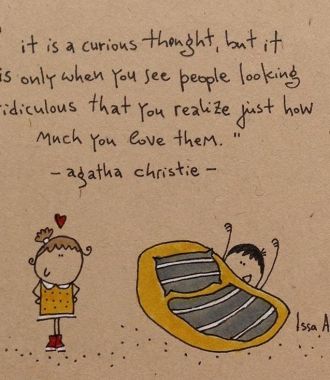 "
it is a curious thought, but it
is only when you see people looking
ridiculous that you realize just how
much you love them."
- agatha christie -
Issa A